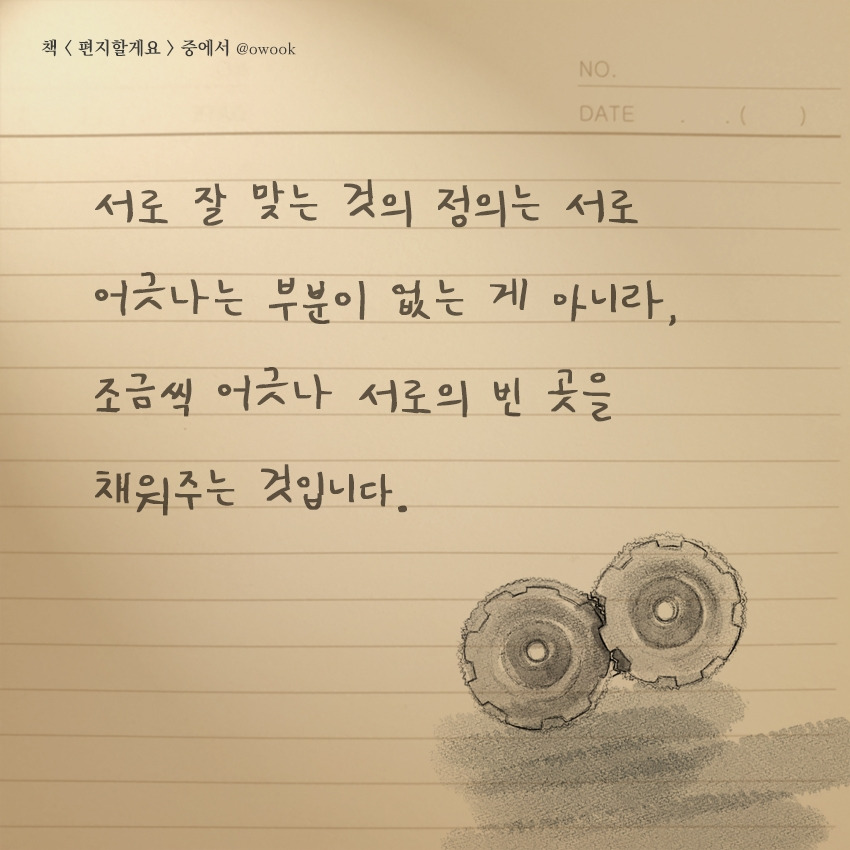 책 < 편지할게요 > 중에서 @owook
NO.
DATE . . ( )
서로 잘 맞는 것의 정의는 서로
어긋나는 부분이 없는 게 아니라,
조금씩 어긋나 서로의 빈 곳을
채워주는 것입니다.